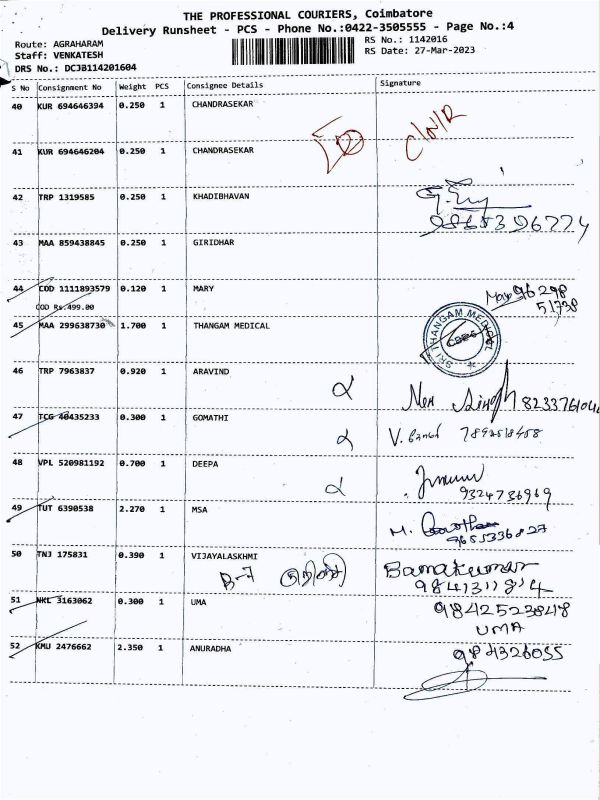 THE PROFESSIONAL COURIERS, Coimbatore
Delivery Runsheet - PCS - Phone No.:0422-3505555 - Page No.:4
Route: AGRAHARAM
Staff: VENKATESH
DRS No.: DCJB114201604
RS No.: 1142016
RS Date: 27-Mar-2023
S No Consignment No Weight PCS Consignee Details Signature
40 KUR 694646394 0.250 1 CHANDRASEKAR
C/N/R
41 KUR 694646204 0.250 1 CHANDRASEKAR
42 TRP 1319585 0.250 1 KHADIBHAVAN
43 MAA 859438845 0.250 1 GIRIDHAR
44 COD 1111893579 0.120 1 MARY Mary 96298
COD Rs.499.00 51738
45 MAA 299638730 1.700 1 THANGAM MEDICAL
SRI THANGAM MEDICAL
46 TRP 7963837 0.920 1 ARAVIND
47 TCG 40435233 0.300 1 GOMATHI
48 VPL 520981192 0.700 1 DEEPA
9324736969
49 TUT 6390538 2.270 1 MSA
9655336827
50 TNJ 175831 0.390 1 VIJAYALASKHMI
51 NKL 3163062 0.300 1 UMA 9842523848
UMA
52 KMU 2476662 2.350 1 ANURADHA 984326055